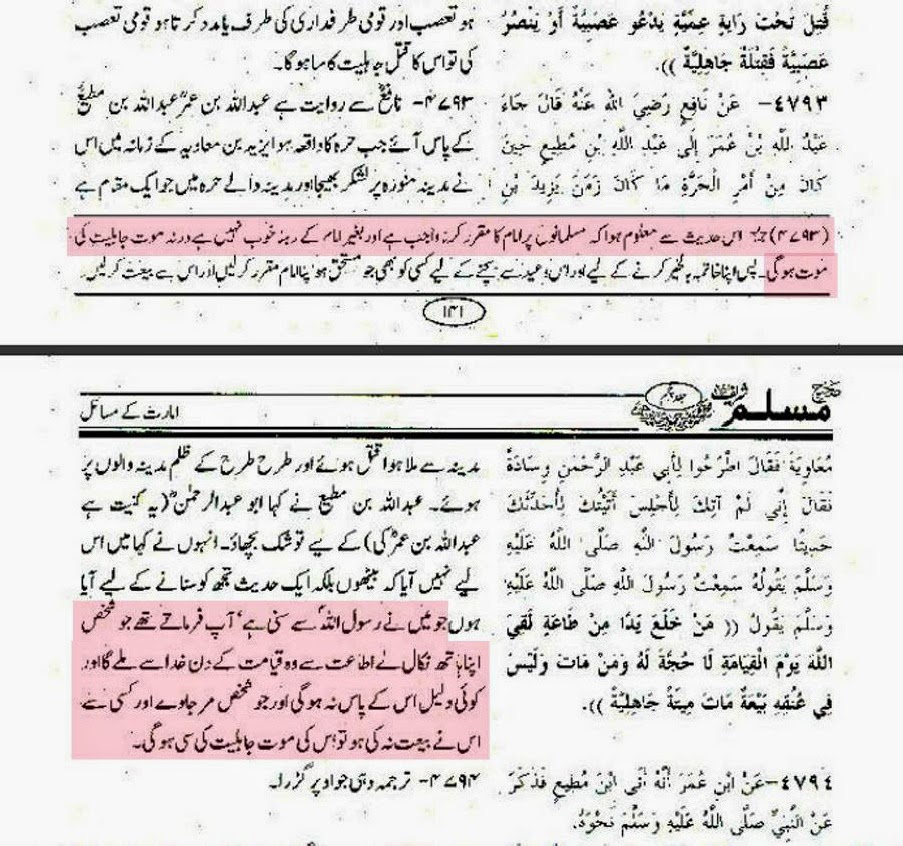 قُتِلَ تَحْتَ رَايَةٍ عِمِّيَّةٍ يَدْعُو عَصَبِيَّةً أَوْ يَنْصُرُ
عَصَبِيَّةً فَقِتْلَةٌ جَاهِلِيَّةٌ )).
٤٧٩٣- عَنْ نَافِعٍ رَضِيَ اللهُ عَنْهُ قَالَ جَاءَ
عَبْدُ اللهِ بْنُ عُمَرَ إِلَى عَبْدِ اللهِ بْنِ مُطِيعٍ حِينَ
كَانَ مِنْ أَمْرِ الْحَرَّةِ مَا كَانَ زَمَنَ يَزِيدَ بْنِ
ہو تعصب اور قومی طرفداری کی طرف یا مدد کرتا ہو قومی تعصب
کی تو اس کا قتل جاہلیت کا سا ہوگا۔
۴۷۹۳- نافعؒ سے روایت ہے عبداللہ بن عمرؓ عبداللہ بن مطیعؓ
کے پاس آئے جب حرہ کا واقعہ ہوا یزید بن معاویہ کے زمانہ میں اس
نے مدینہ منورہ پر لشکر بھیجا اور مدینہ والے حرہ میں جو ایک مقام ہے
(۴۷۹۳) اس حدیث سے معلوم ہوا کہ مسلمانوں پر امام کا مقرر کرنا واجب ہے اور بغیر امام کے رہنا خوب نہیں ہے ورنہ موت جاہلیت کی
موت ہوگی۔ پس اپنا خاتمہ بخیر کرنے کے لیے اور اس وعید سے بچنے کے لیے کسی کو بھی جو مستحق ہو اپنا امام مقرر کر لیں اور اس سے بیعت کر لیں۔
۱۳۱
صحیح مسلم
امارت کے مسائل
مُعَاوِيَةَ فَقَالَ اطْرَحُوا لِأَبِي عَبْدِ الرَّحْمَنِ وِسَادَةً
فَقَالَ إِنِّي لَمْ آتِكَ لِأَجْلِسَ أَتَيْتُكَ لِأُحَدِّثَكَ
حَدِيثًا سَمِعْتُ رَسُولَ اللهِ صَلَّى اللهُ عَلَيْهِ
وَسَلَّمَ يَقُولُهُ سَمِعْتُ رَسُولَ اللهِ صَلَّى اللهُ عَلَيْهِ
وَسَلَّمَ يَقُولُ (( مَنْ خَلَعَ يَدًا مِنْ طَاعَةٍ لَقِيَ
اللهَ يَوْمَ الْقِيَامَةِ لَا حُجَّةَ لَهُ وَمَنْ مَاتَ وَلَيْسَ
فِي عُنُقِهِ بَيْعَةٌ مَاتَ مِيتَةً جَاهِلِيَّةً )).
٤٧٩٤-عَنْ ابْنِ عُمَرَ أَنَّهُ أَتَى ابْنَ مُطِيعٍ فَذَكَرَ
عَنْ النَّبِيِّ صَلَّى اللهُ عَلَيْهِ وَسَلَّمَ نَحْوَهُ.
مدینہ سے ملا ہوا قتل ہوئے اور طرح طرح کے ظلم مدینہ والوں پر
ہوئے۔ عبداللہ بن مطیع نے کہا ابو عبدالرحمٰن (یہ کنیت ہے
عبداللہ بن عمرؓ کی) کے لیے توشک بچھاؤ۔ انہوں نے کہا میں اس
لیے نہیں آیا کہ بیٹھوں بلکہ ایک حدیث تجھ کو سنانے کے لیے آیا
ہوں جو میں نے رسول اللہؐ سے سنی ہے آپ فرماتے تھے جو شخص
اپنا ہاتھ نکال لے اطاعت سے وہ قیامت کے دن خدا سے ملے گا اور
کوئی دلیل اس کے پاس نہ ہوگی اور جو شخص مر جاوے اور کسی سے
اس نے بیعت نہ کی ہو تو اس کی موت جاہلیت کی سی ہوگی۔
۴۷۹۴- ترجمہ وہی جو اوپر گزرا۔